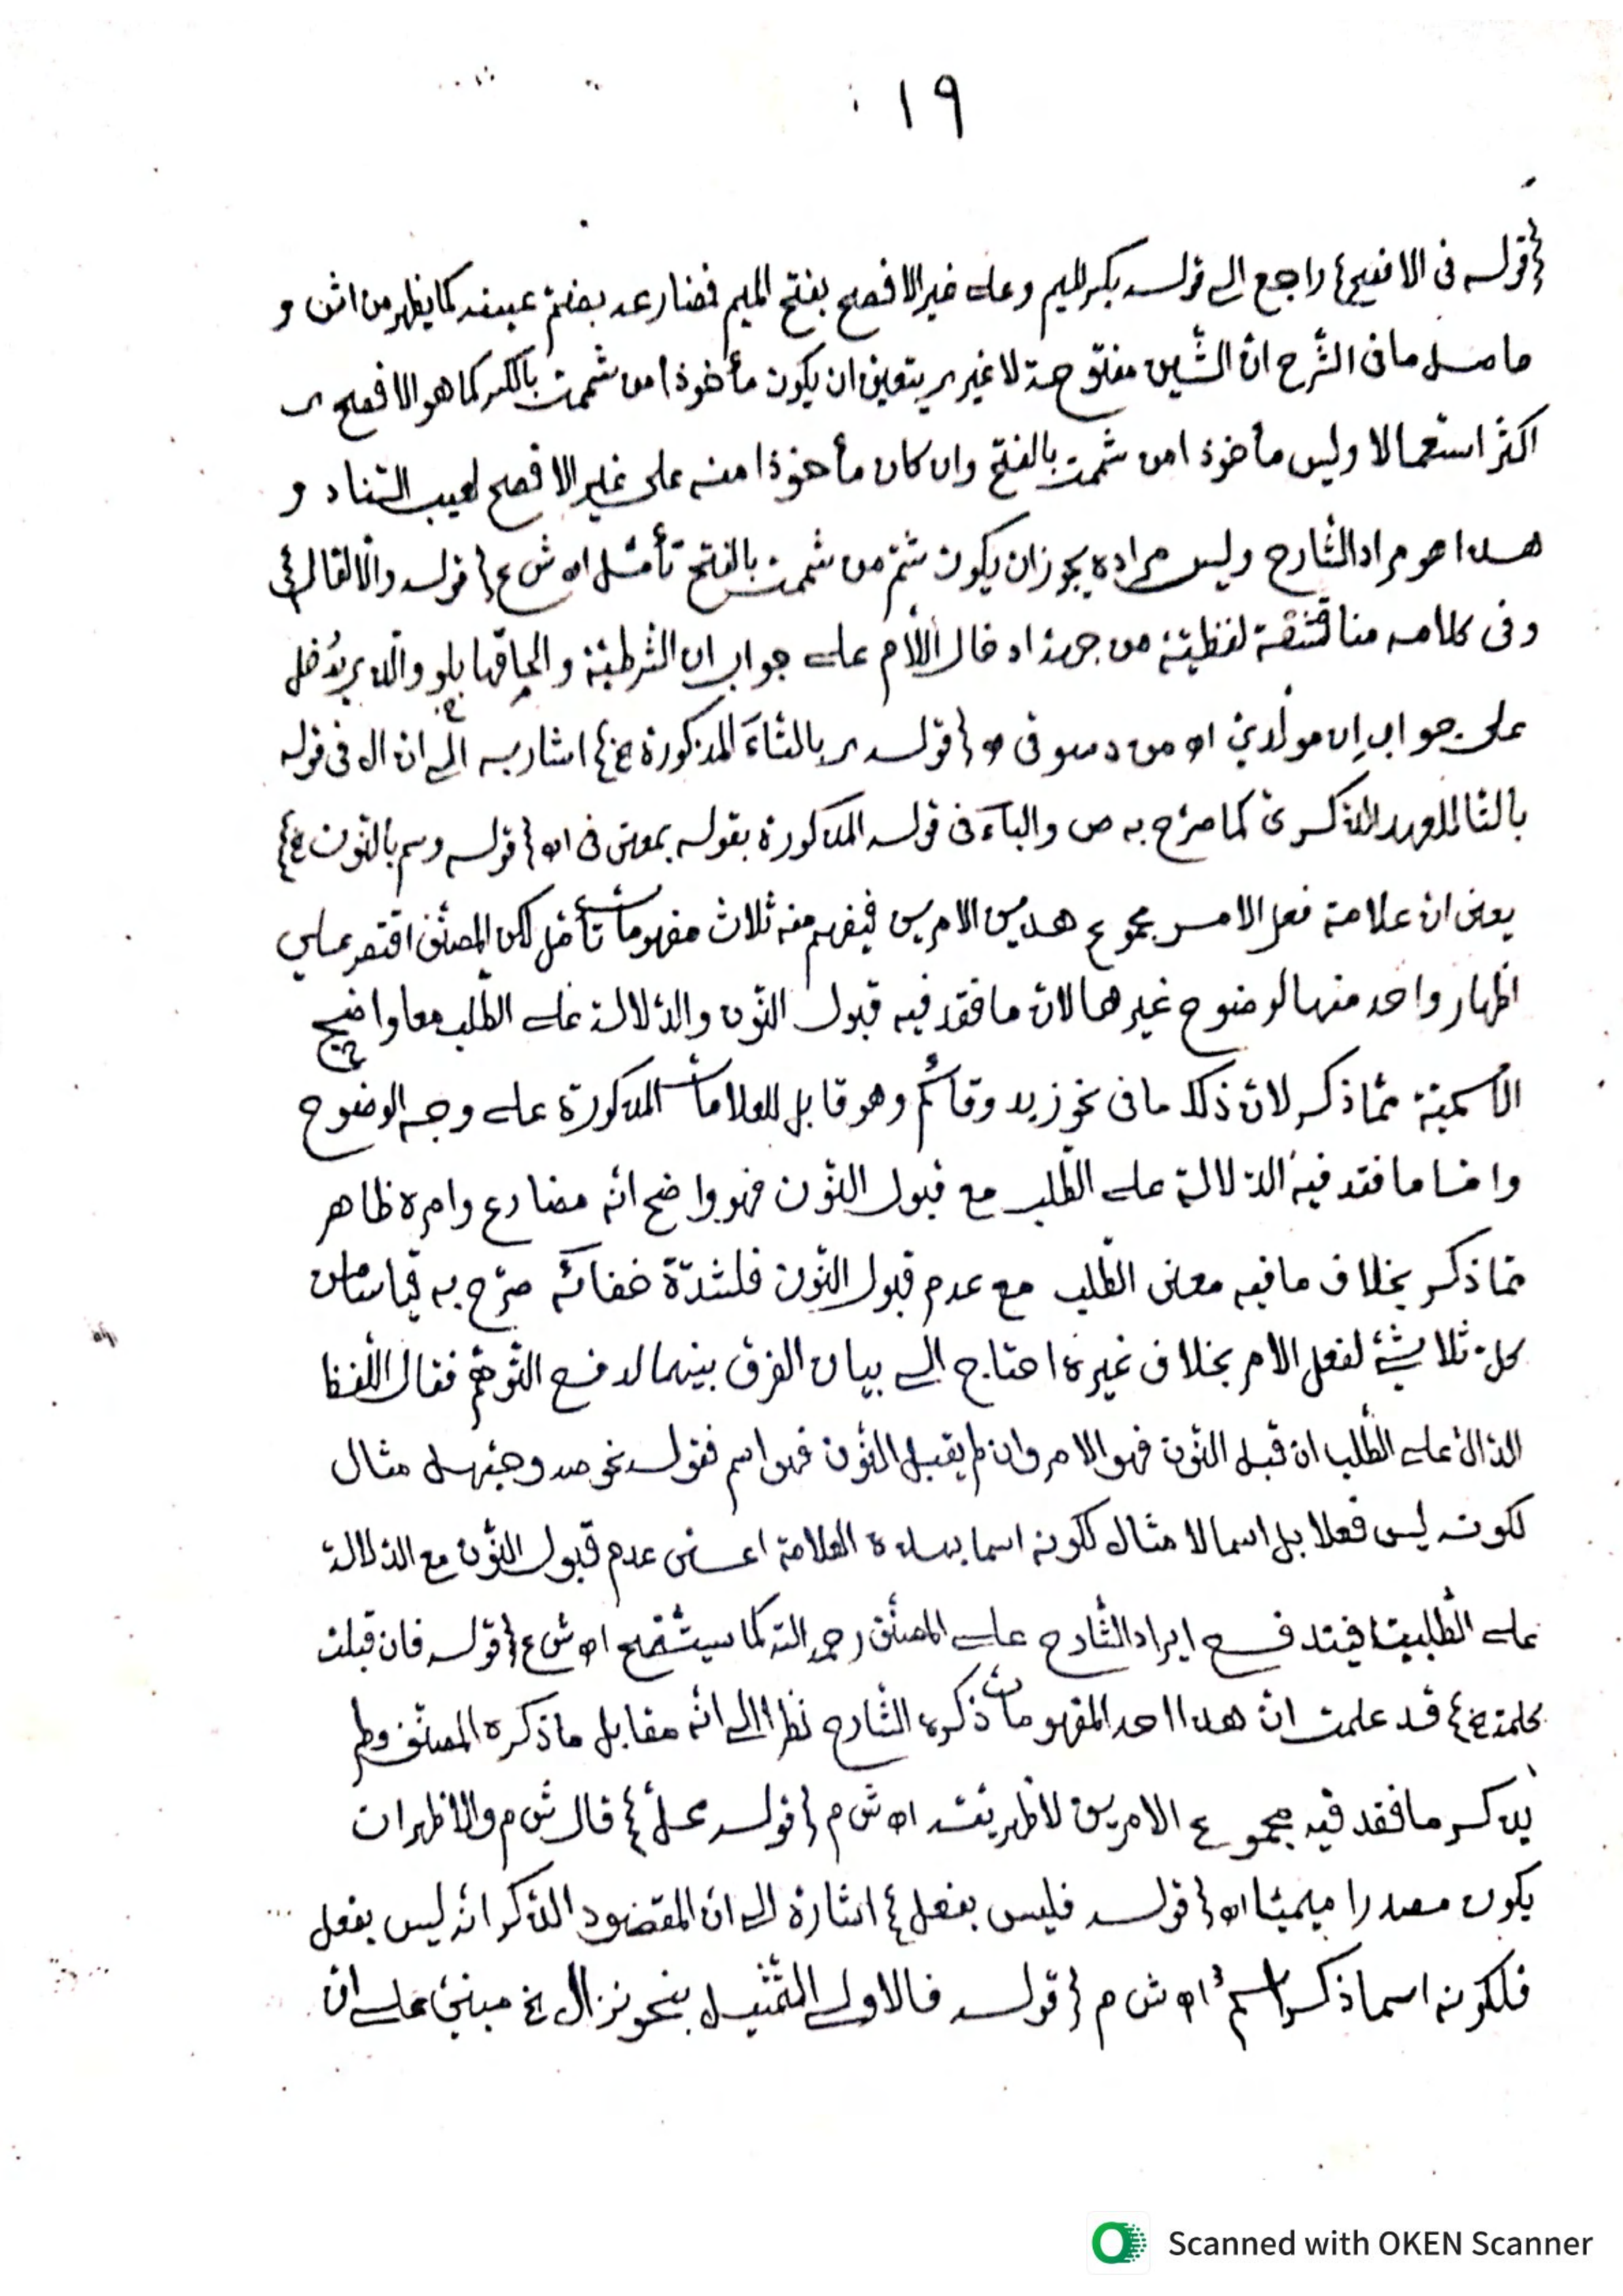 ١٩
{قوله فى الافصح} راجع الى قوله بكسر الميم وعلى غير الافصح بفتح الميم فمضارعه بضمّ عينه كما يظهر من اش و
حاصل مافى الشّرح انّ الشّين مفتوحة لا غير يتعين ان يكون مأخوذا من شممت بالكسر كما هو الافصح
اكثر استعمالا وليس مأخوذا من شممت بالفتح وان كان مأخوذا منه على غير الافصح لعيب السّناد و
هذا هو مراد الشّارح وليس مراده يجوز ان يكون شمّ من شممت بالفتح تأمّل اه ش ع {قوله والّا لقال
وفى كلامه مناقشة لفظيّة من جهة ادخال اللّام على جواب ان الشّرطيّة والحاقها بلو والّذى يدخل
على جواب ان مولّدين اه من دسوقى {قوله بالتّاء المذكورة الخ} اشار به الى انّ ال فى قوله
بالتا للعهد الذّكرىّ كما صرّح به ص والباء فى قوله المذكورة بقوله بمعنى فى اه {قوله وسم بالنّون الخ}
يعنى انّ علامة فعل الامر مجموع هذين الامرين فيفهم منه ثلاث مفهومات تأمّل لكن المصنّف اقتصر على
اظهار واحد منها لوضوح غيرهما لانّ ما فقد فيه قبول النّون والدّلالة على الطّلب معا واضح
الاسميّة ممّا ذكر لانّ ذلك ما فى نحو زيد وقائم وهو قابل للعلامات المذكورة على وجه الوضوح
وامّا ما فقد فيه الدّلالة على الطّلب مع قبول النّون فهو واضح انّه مضارع وامره ظاهر
ممّا ذكر بخلاف ما فيه معنى الطّلب مع عدم قبول النّون فلشدّة خفائه صرّح به قياسا من
كلّ ثلاثىّ لفعل الامر بخلاف غيره احتاج الى بيان الفرق بينهما لدفع التّوهّم فقال اللّفظ
الدّالّ على الطّلب ان قبل النّون فهو الامر وان لم يقبل النّون فهو اسم فقوله نحو صه وحيّهل مثال
لكونه ليس فعلا بل اسما لا مثال لكونه اسما بهذه العلامة اعنى عدم قبول النّون مع الدّلالة
على الطّلبيّة فيندفع ايراد الشّارح على المصنّف رحمه الله كما سيتّضح اه ش ع {قوله فان قبلت
كلمة الخ} قد علمت انّ هذا احد المفهومات ذكره الشّارح نظرا الى انّه مقابل ما ذكره المصنّف ولم
يذكر ما فقد فيه مجموع الامرين لاظهريّته اه ش م {قوله محلّ} قال ش م والاظهر ان
يكون مصدرا ميميّا اه {قوله فليس بفعل} اشارة الى انّ المقصود الذّكر انّه ليس بفعل
فلكونه اسما ذكر اسم اه ش م {قوله فالاولى التّمثيل بنحو نزال الخ مبنىّ على انّ
Scanned with OKEN Scanner